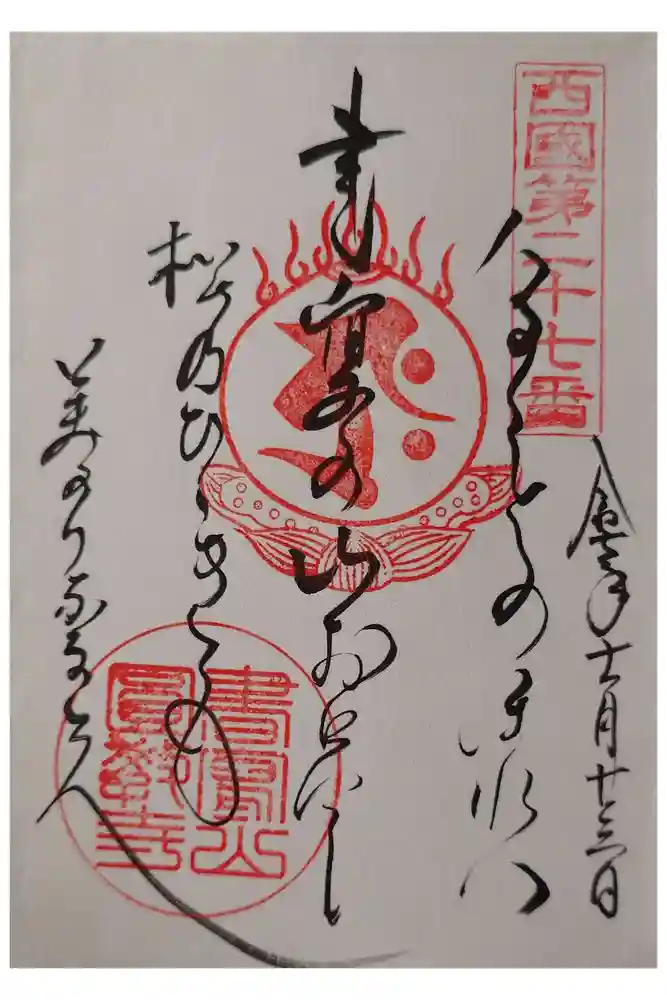 西國第二十七番
十一月十三日
はる〳〵とのほれは
書寫の山おろし
松乃ひゝきも
美のりなるらん
書寫山
圓教寺